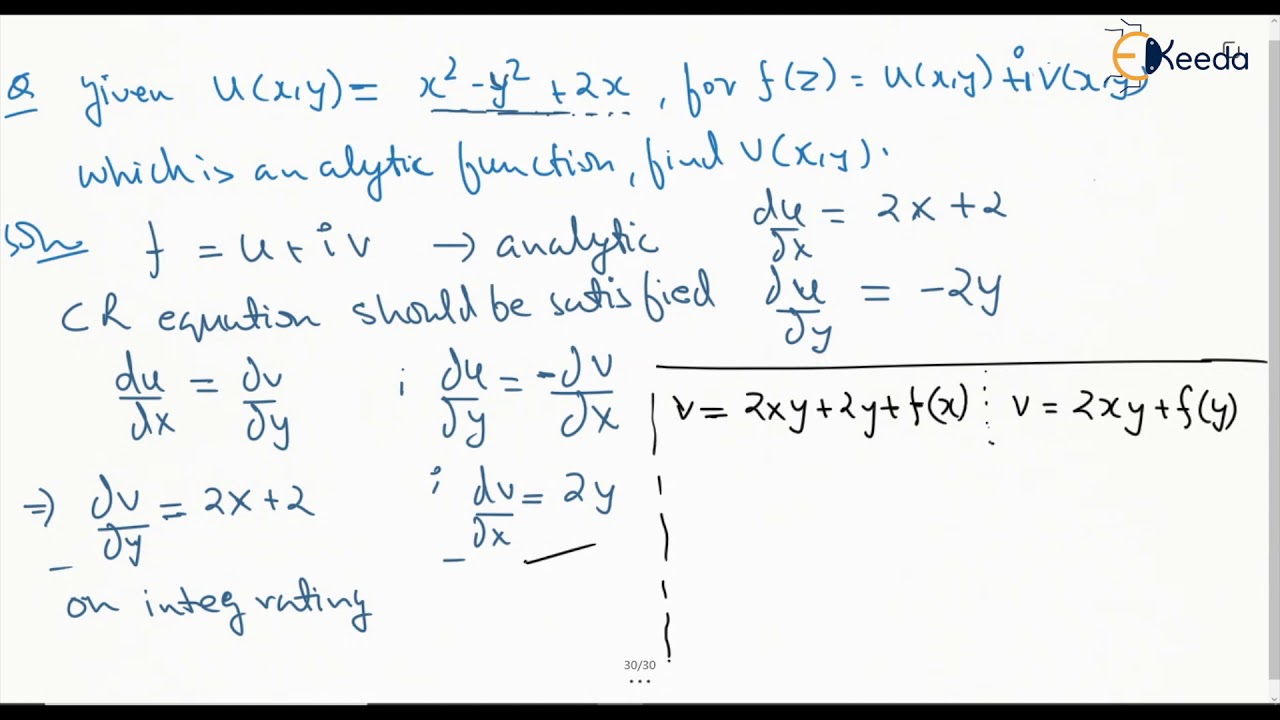 EKeeda
Q given u(x,y) = x² - y² + 2x, for f(z) = u(x,y) + iv(x,y)
which is analytic function, find v(x,y).
Soln f = u + iv → analytic
∂u/∂x = 2x + 2
CR equation should be satisfied
∂u/∂y = -2y
du/dx = ∂v/∂y ; ∂u/∂y = -∂v/∂x
⇒ ∂v/∂y = 2x + 2 ; dv/∂x = 2y
on integrating
v = 2xy + 2y + f(x) ⋮ v = 2xy + f(y)
30/30